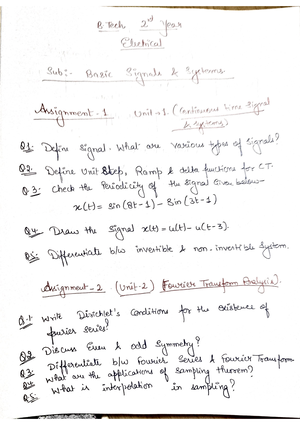 B.Tech 2nd Year
Electrical
Sub:- Basic Signals & Systems
Assignment-1 Unit-1 (Continuous time Signal
& Systems)
Q1. Define Signal. What are various types of Signals?
Q2. Define Unit Step, Ramp & delta functions for CT.
Q.3. Check the Periodicity of the Signal Given below-
x(t) = Sin(8t-1) - Sin(3t-1)
Q4. Draw the Signal x(t) = u(t) - u(t-3).
Q5. Differentiate b/w invertible & non-invertible System.
Assignment-2 (Unit-2) (Fourier Transform Analysis).
Q.1 Write Dirichlet's Conditions for the existence of
fourier series?
Q2 Discuss Even & odd Symmetry?
Q3. Differentiate b/w Fourier Series & Fourier Transform
Q4. What are the applications of Sampling theorem?
Q5. What is interpolation in sampling?